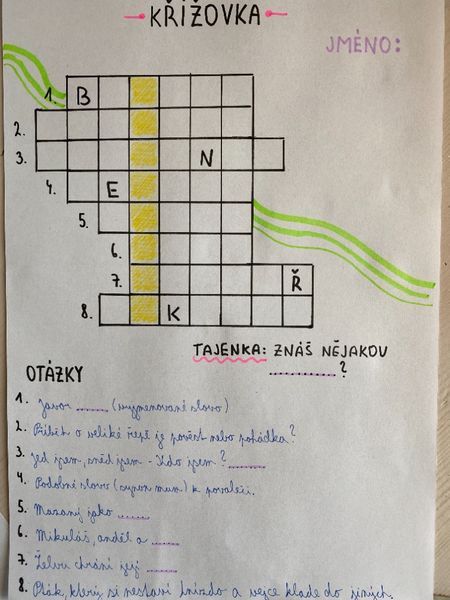 KŘÍŽOVKA
JMÉNO:
1. B
2.
3. N
4. E
5.
6.
7. Ř
8. K
TAJENKA: ZNÁŠ NĚJAKOU
........?
OTÁZKY
1. Javor ...... (vyjmenované slovo)
2. Příběh o veliké řepě je pověst nebo pohádka?
3. Jed jsem, sněd jsem - Kdo jsem? ......
4. Podobné slovo (synonymum) k povaleči.
5. Mazaný jako ......
6. Mikuláš, anděl a ......
7. Želvu chrání její ......
8. Pták, který si nestaví hnízdo a vejce klade do jiných.